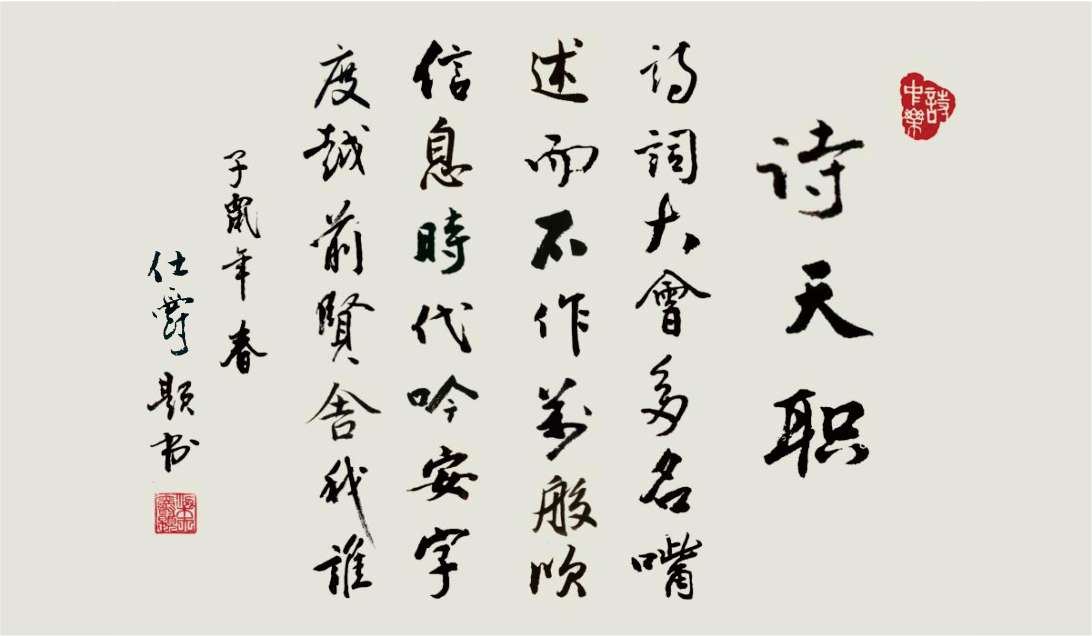 詩中樂
诗天职
詩詞大會多名嘴
述而不作萬般吹
信息時代吟安字
度越前賢舍我誰
子鼠年春
仕題书